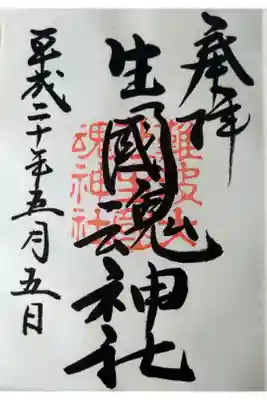 奉拝
生國魂神社
難波大
魂神社
平成二十年五月五日